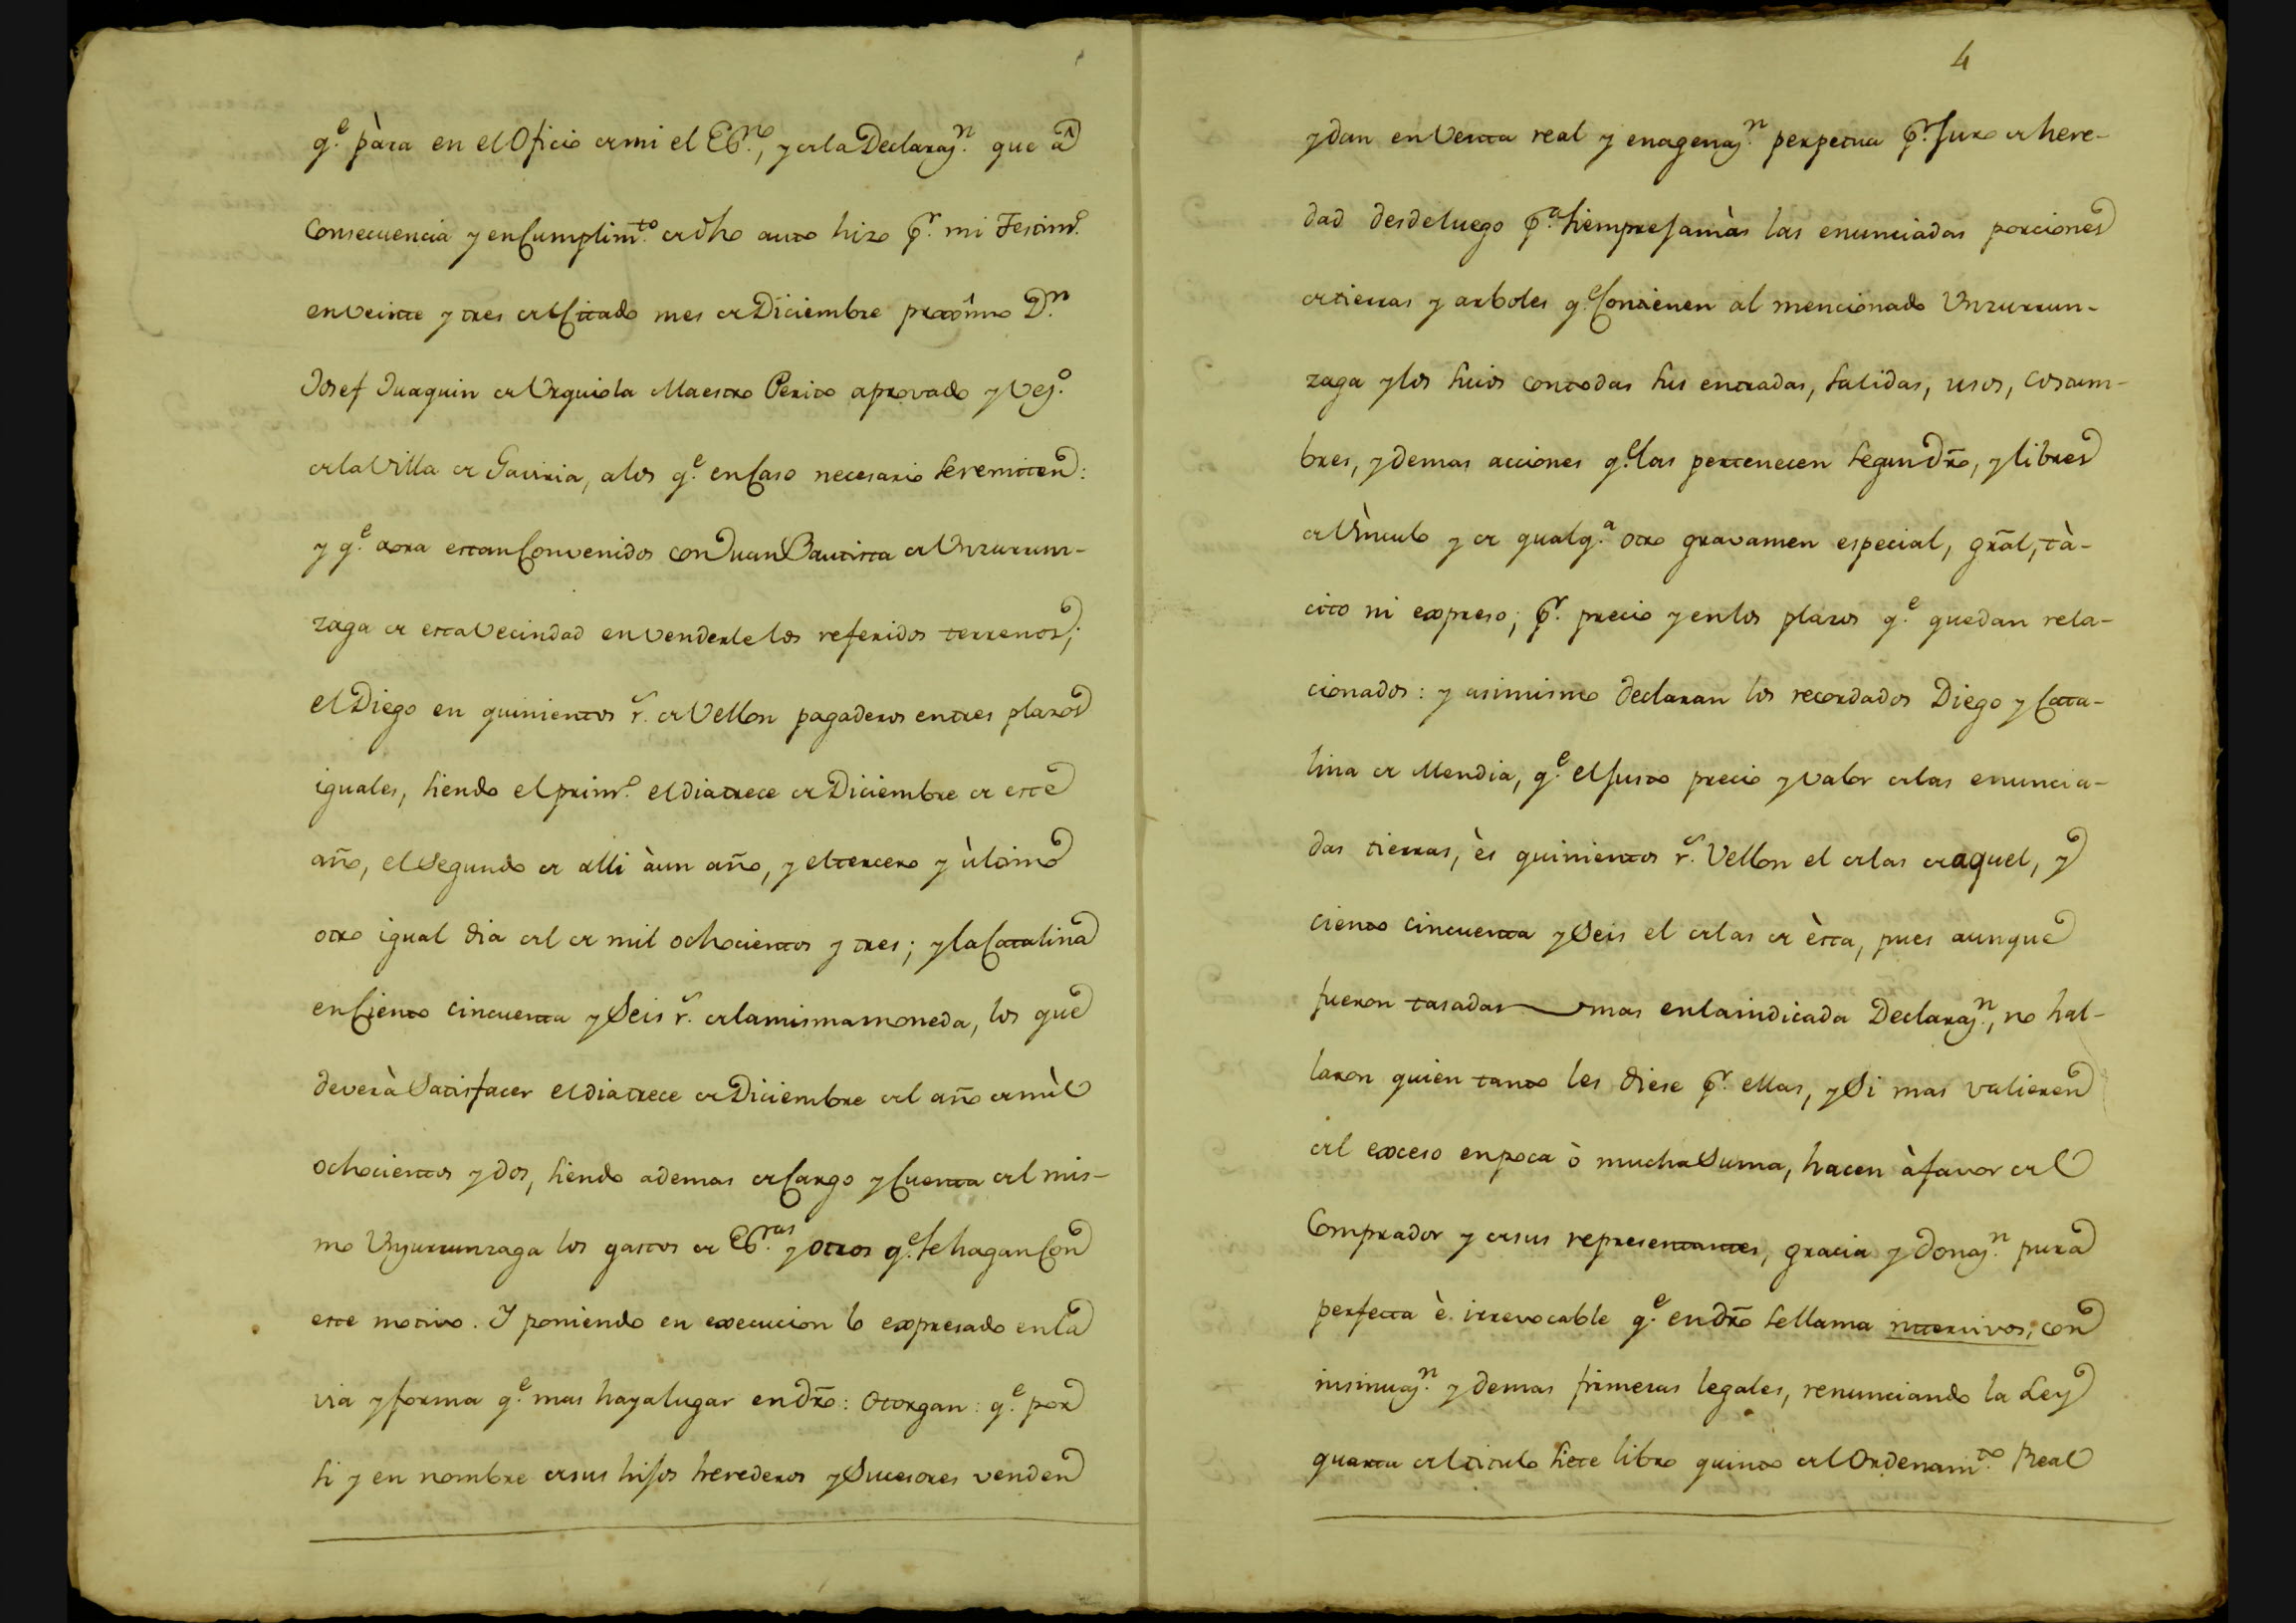 q.e pàra en el Oficio de mi el Esno., y de la Declarazn. que â
consecuencia y en cumplimto. de dho auto hizo pr. mi Testimo.
en veinte y tres del citado mes de Diciembre proximo Dn.
Josef Juaquin de Urquiola Maestro Perito aprovado y Vezo.
de la Villa de Gaviria, a los q.e en caso necesario se remiten:
y q.e aora estan convenidos con Juan Bautista de Unzurrun-
zaga de esta Vecindad en venderle los referidos terrenos;
el Diego en quinientos rs. de Vellon pagaderos en tres plazos
iguales, siendo el primo. el dia trece de Diciembre de este
año, el segundo de alli à un año, y el tercero y ùltimo
otro igual dia del de mil ochocientos y tres; y la Catalina
en ciento cincuenta y seis rs. de la misma moneda, los que
deverà satisfacer el dia trece de Diciembre del año de mil
ochocientos y dos, siendo ademas de cargo y cuenta del mis-
mo Unzurrunzaga los gastos de Esras. y otros q.e se hagan con
este motivo. Y poniendo en execucion lo expresado en la
via y forma q.e mas haya lugar en dro: Otorgan: q.e por
si y en nombre de sus hijos herederos y sucesores venden
4
y dan en Venta real y enagenazn. perpetua pr. Juro de here-
dad desde luego pa. siempre jamàs las enunciadas porciones
de tierras y arboles q.e contienen al mencionado Unzurrun-
zaga y los suios con todas sus entradas, salidas, usos, costum-
bres, y demas acciones q.e las pertenecen segun dro, y libres
de Vìnculo y de qualq.a otro gravamen especial, gral, tà-
cito ni expreso; pr. precio y en los plazos q.e quedan rela-
cionados: y asimismo declaran los recordados Diego y Cata-
lina de Mendia, q.e el justo precio y valor de las enuncia-
das tierras, ès quinientos rs. Vellon el de las de aquel, y
ciento cincuenta y seis el de las de èsta, pues aunque
fueron tasadas mas en la indicada Declarazn., no hal-
laron quien tanto les diese pr. ellas, y si mas valieren
del exceso en poca ò mucha suma, hacen à favor del
Comprador y de sus representantes, gracia y donazn. pura
perfecta è irrevocable q.e en dro se llama intervivos, con
insinuazn. y demas firmezas legales, renunciando la Ley
quarta del titulo siete libro quinto del Ordenamto. Real